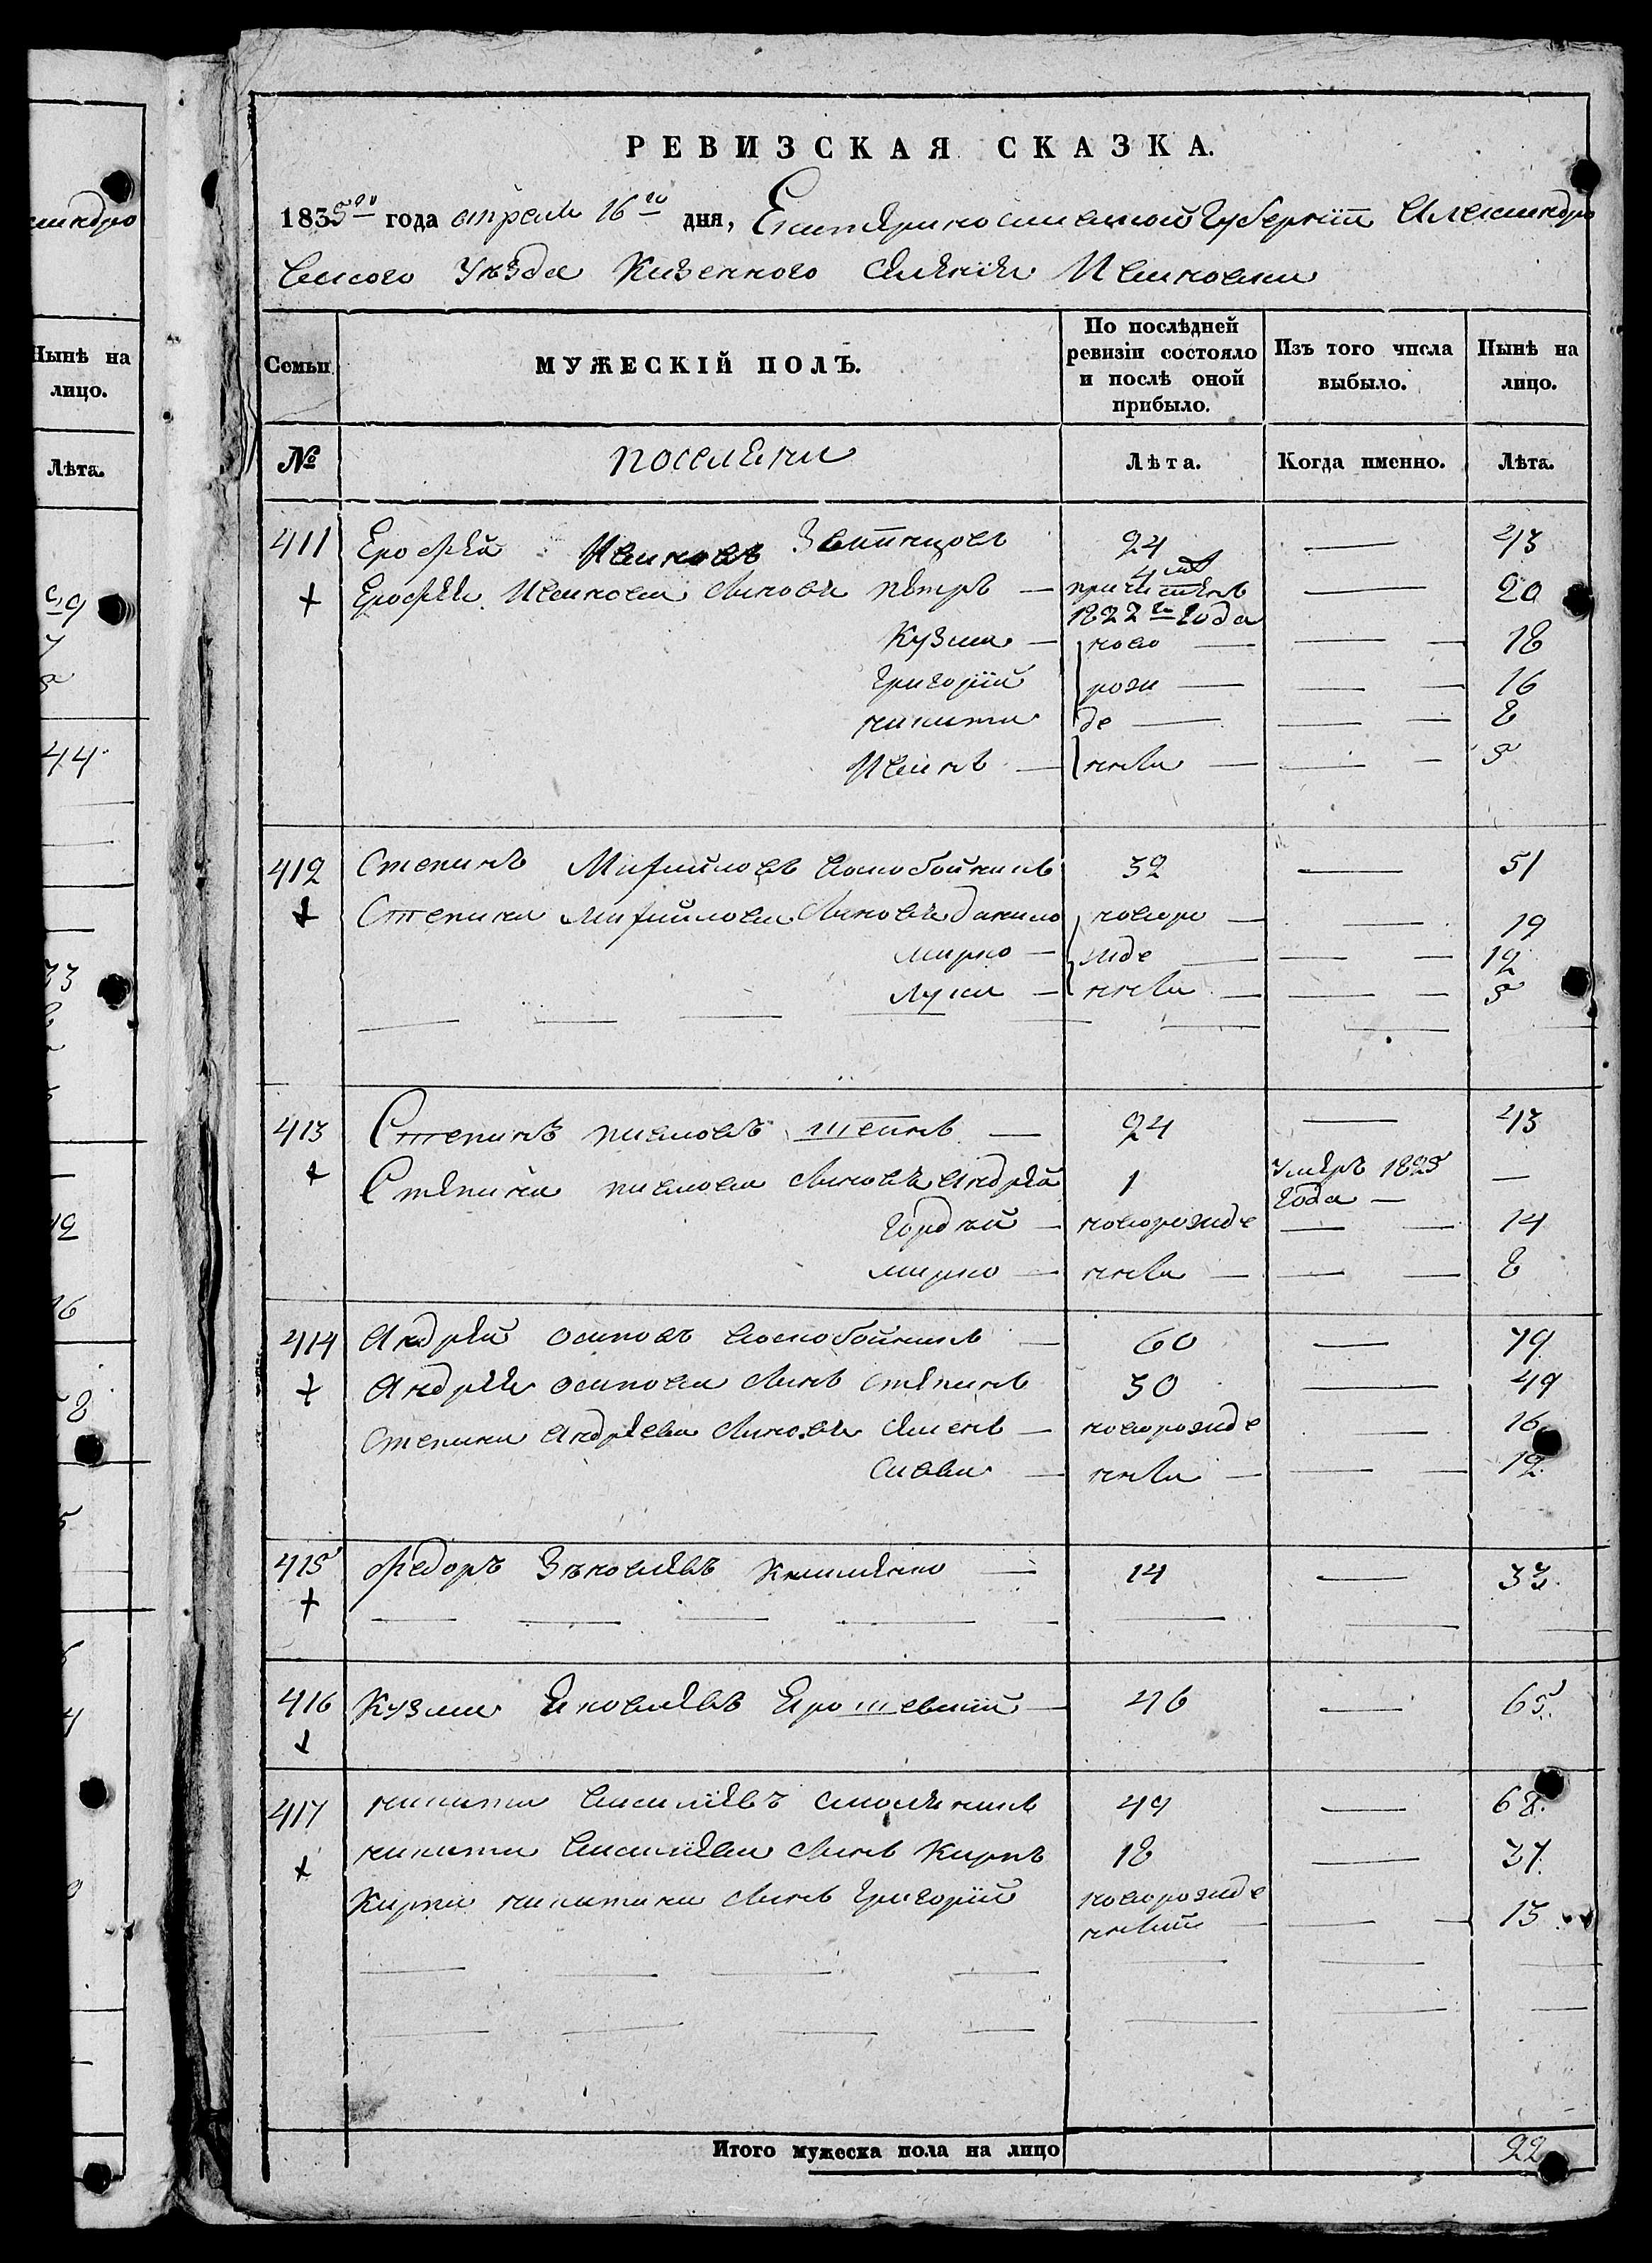 РЕВИЗСКАЯ СКАЗКА.
1835го года апреля 16го дня, Екатериносла вской Губернїи Александро
вского Уѣзда Казенного селения Ивановки
Семьи
МУЖЕСКІЙ ПОЛЪ.
По послѣдней ревизіи состояло и послѣ оной прибыло.
Изъ того числа выбыло.
Нынѣ на лицо.
№
поселяни
Лѣта.
Когда именно.
Лѣта.
411 Ерофей Ивановъ 24 — 43
Ерофея Иванова сынови Петръ — 4 причи 1822го Года — 20
Кузма — ново — — — 18
Григорїй рож — — — 16
никита де — — — 8
Иванъ — нныи — — — 5
412 Степанъ Михайловъ Воскобойникъ 32 — 51
Степана Михайлова Сыновья данило новоро — — 19
марко — жде — — — 12
Лука — нныи — — — 5
413 Степанъ павловъ — 24 — 43
Степана павлова Сыновья андрей 1 умеръ 1825 Года — —
Гордѣй — новорожде — — 14
марко — нныи — — — 8
414 Андрей осиповъ воскобойникъ — 60 — 79
Андрея осипова Сынъ степанъ 30 — 49
Степана Андреева Сыновья Семенъ — новорожде — 16
Савва — нныи — — — 12
415 Федоръ — 14 — 33
416 Кузма Яковлевъ — 46 — 65
417 никита васильевъ 49 — 68
никиты васильева Сынъ Карпъ 18 — 37
Карпа никитина Сынъ Григорїй новорожде нный — — — 13
Итого мужеска пола на лицо 22
Нынѣ на лицо.
Лѣта.
44